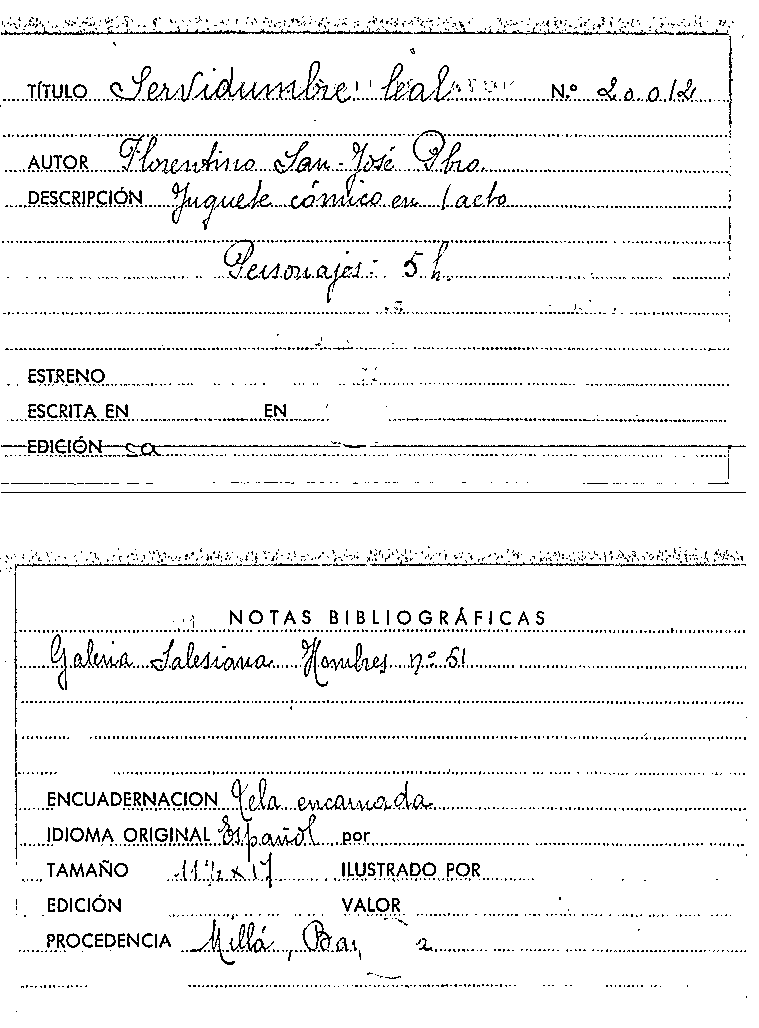 TÍTULO Servidumbre leal N.º 20012
AUTOR Florentino San-José Pbro.
DESCRIPCIÓN Juguete cómico en 1 acto
Personajes: 5 h.
ESTRENO
ESCRITA EN EN
EDICIÓN
NOTAS BIBLIOGRÁFICAS
Galeria Salesiana Hombres nº 51
ENCUADERNACION Tela encarnada
IDIOMA ORIGINAL Español por
TAMAÑO 11½ x 17 ILUSTRADO POR
EDICIÓN VALOR
PROCEDENCIA Millá, Bar a